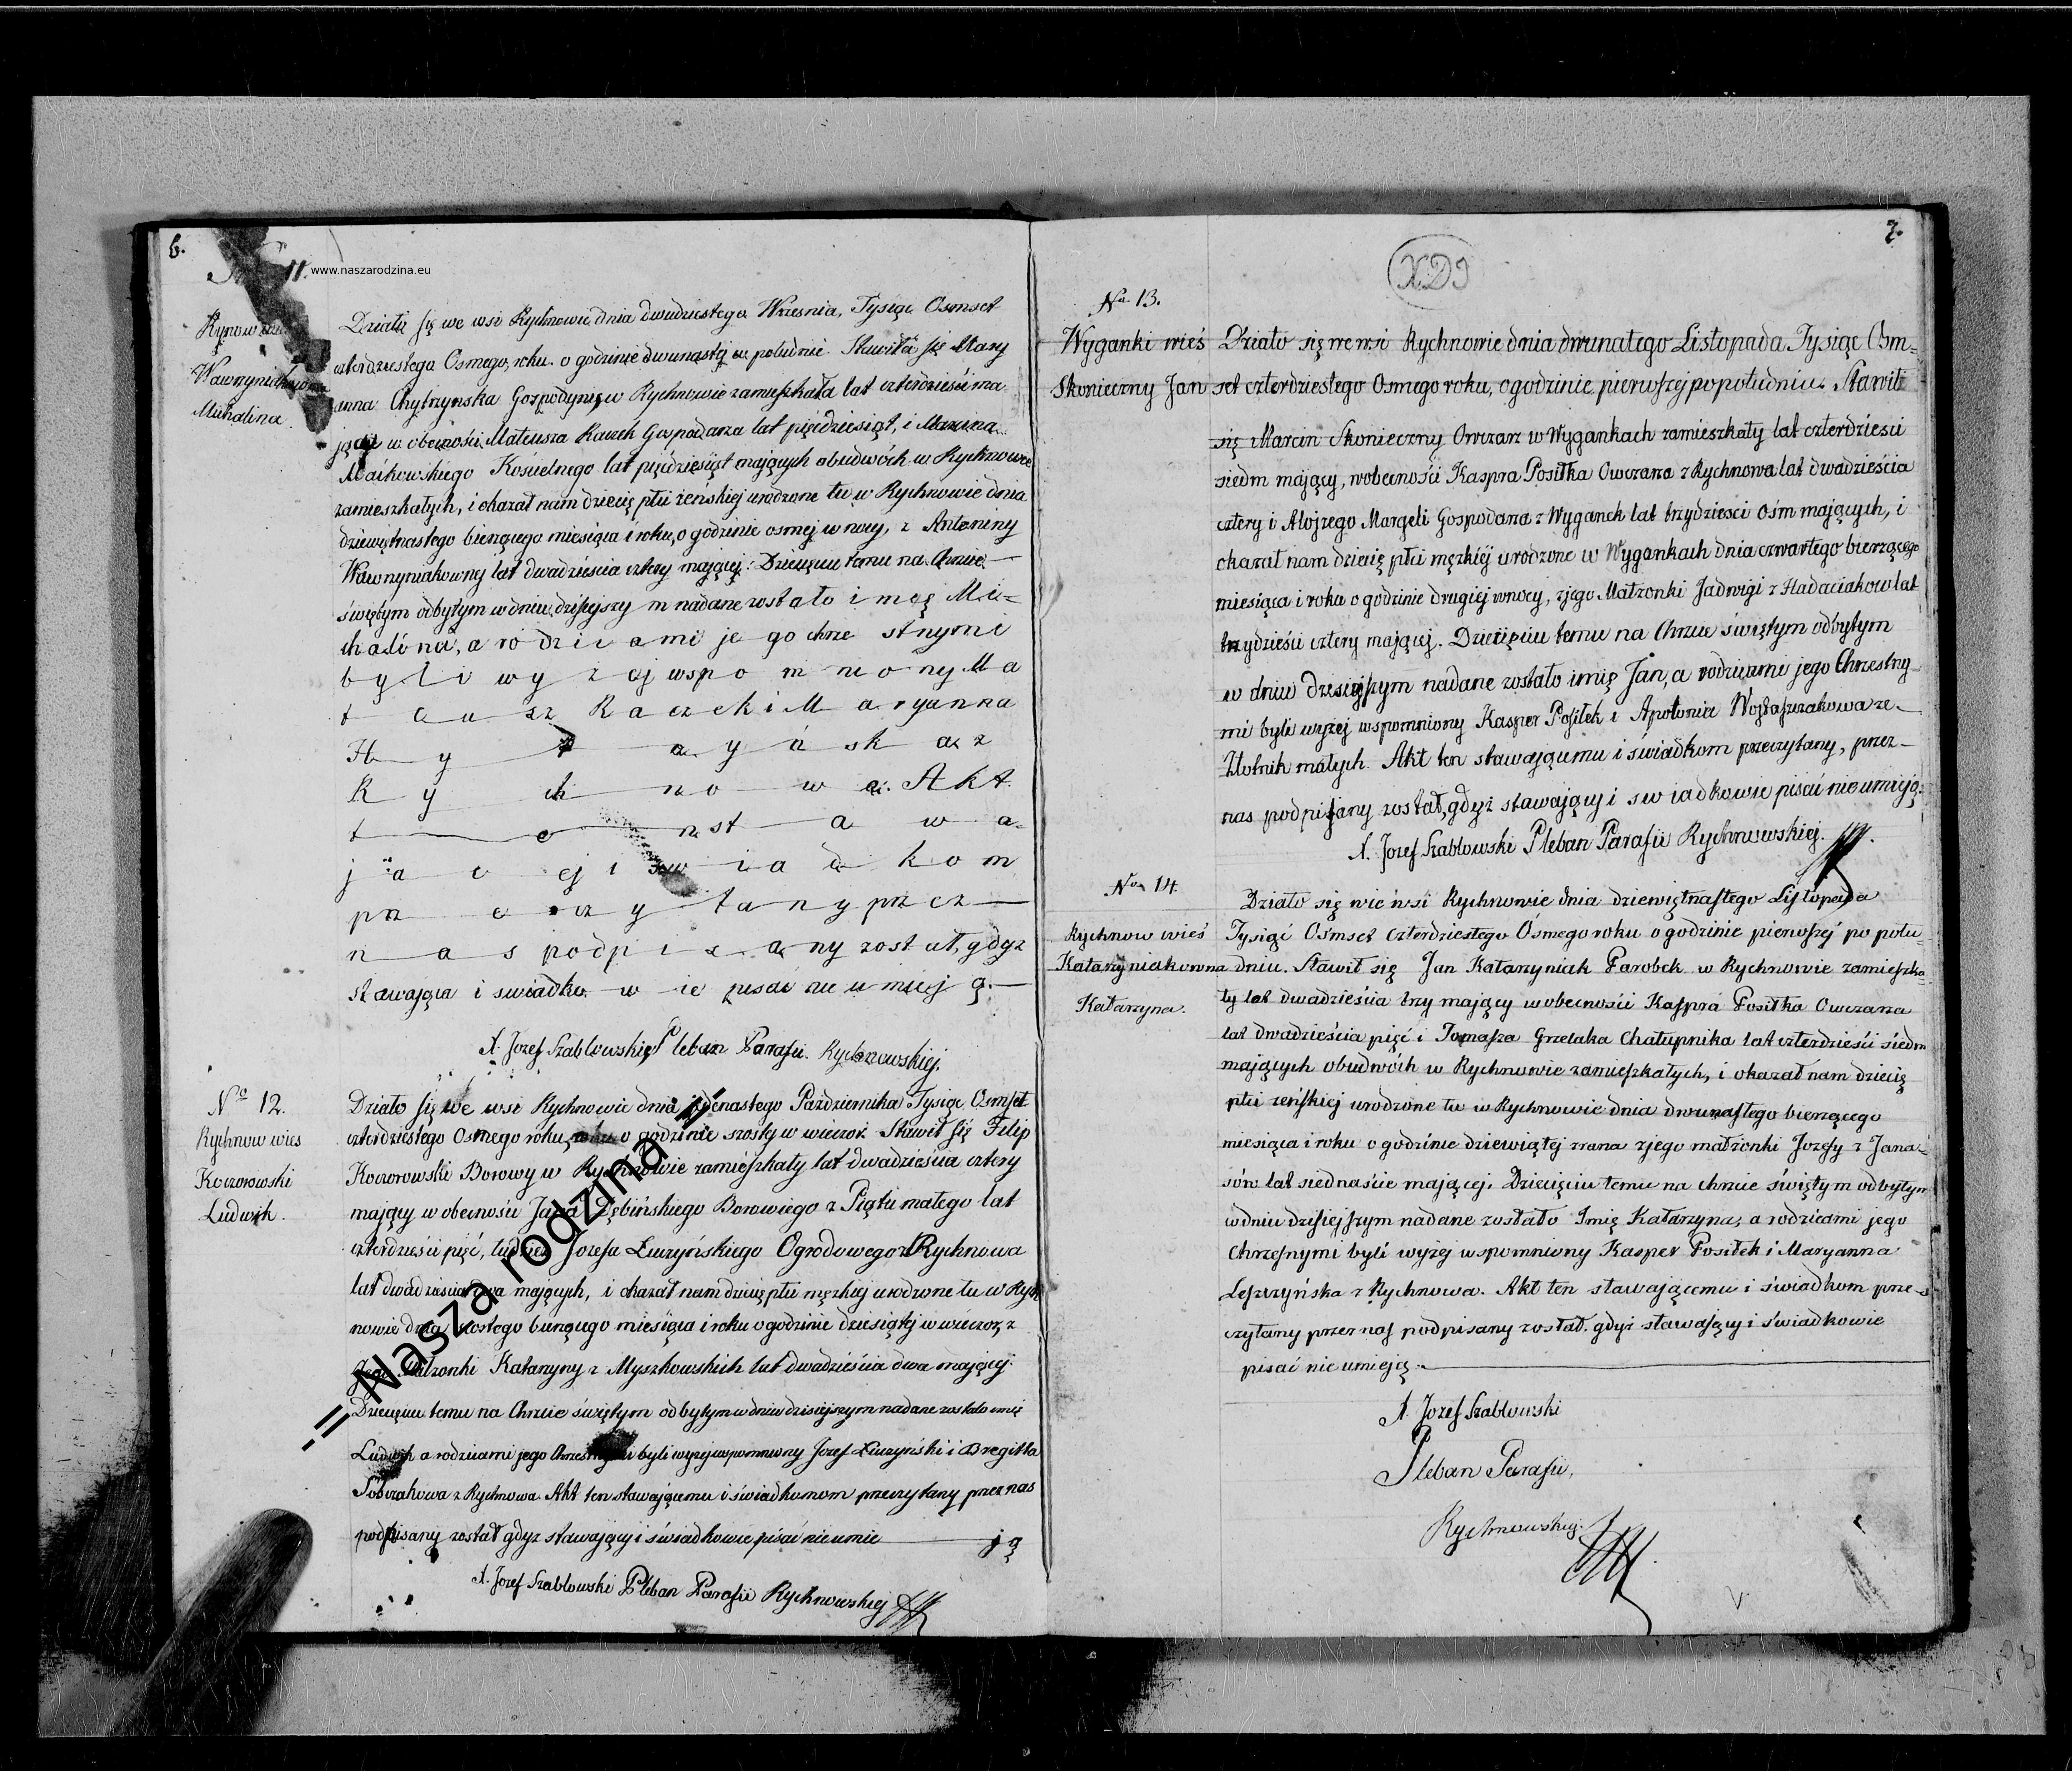 6.
11.
www.naszarodzina.eu
Działo się we wsi Rychnowie dnia dwudziestego Wrzesnia, Tysiąc Osmset
czterdziestego Osmego, roku o godzinie dwunastej w południe. Stawiła się Mary
Michalina.
anna Chytrzynska Gospodynią w Rychnowie zamieszkała lat czterdzieści ma
jąca w obecności Mateusza Raczek Gospodarza lat pięćdziesiąt, i Marcina
Maikowskiego Kościelnego lat pięćdziesiąt mających obudwóch w Rychnowie
zamieszkałych, i okazał nam dziecię płci żeńskiej urodzone tu w Rychnowie dnia
dziewiętnastego bieżącego miesiąca i roku, o godzinie osmej w nocy, z Antoniny
Wawrzyniakowny lat dwadzieścia cztery mającej: Dziecięciu temu na Chrzcie
świętym odbytym w dniu dzisiejszym nadane zostało imię Mi-
chalina, a rodzicami jego chrzestnymi
byli wyżej wspomniony Ma
teusz Raczek i Maryanna
z
Rychnowa. Akt
ten stawa-
jącej i swiadkom
przeczytany przez
nas podpisany został, gdyż
stawająca i swiadkowie pisać nie umieją.
X. Jozef Szabłowski Pleban Parafii Rychnowskiej.
No 12.
Działo się we wsi Rychnowie dnia jedenastego Października Tysiąc Osmset
Rychnow wies
czterdziestego Osmego roku, o godzinie szostej w wieczor. Stawił się Filip
Koczorowski
Koczorowski Borowy w Rychnowie zamieszkały lat dwadzieścia cztery
Ludwik.
mający w obecności Jana Zębińskiego Borowiego z Piątku małego lat
czterdzieści pięć, tudzież Jozefa Łuczyńskiego Ogrodowego z Rychnowa
lat dwadzieścia dwa mających, i okazał nam dziecię płci męzkiej urodzone tu w Rych
nowie dnia szostego bieżącego miesiąca i roku o godzinie dziesiątej w wieczor, z
jego Małżonki Katarzyny z Myszkowskich lat dwadzieścia dwa mającej.
Dziecięciu temu na Chrzcie świętym odbytym w dniu dzisiejszym nadane zostało imię
Ludwik a rodzicami jego Chrzestnymi byli wyżej wspomniony Jozef Łuczyński i Bregitta
Sobczakowa z Rychnowa. Akt ten stawającemu i świadkomom przeczytany przez nas
podpisany został gdyż stawający i świadkowie pisać nie umie ją
X. Jozef Szabłowski Pleban Parafii Rychnowskiej
-= Nasza rodzina =-
7.
No 13.
Wyganki wieś
Działo się we wsi Rychnowie dnia dwunatego Listopada Tysiąc Osm=
Skonieczny Jan
set czterdziestego Osmego roku, o godzinie pierwszej po południu. Stawił
się Marcin Skonieczny Owczarz w Wygankach zamieszkały lat czterdzieści
siedm mający, w obecności Kaspra Posiłka Owczarza z Rychnowa lat dwadzieścia
cztery i Alojzego Margeli Gospodarza z Wyganek lat trzydzieści ośm mających, i
okazał nam dziecię płci męzkiéj urodzone w Wygankach dnia czwartego bierzącego
miesiąca i roku o godzinie drugiéj w nocy, z jego Małżonki Jadwigi z Hadaciakow lat
trzydzieści cztery mającej. Dziecięciu temu na Chrzcie świętym odbytym
w dniu dzisiejszym nadane zostało imię Jan, a rodzicami jego Chrzestny-
mi byli wyżej wspomniony Kasper Posiłek i Apolonia Wojtaszczakowa ze
Złotnik małych. Akt ten stawającemu i świadkom przeczytany, przez
nas podpisany został, gdyż stawający i swiadkowie pisać nie umieją.
X. Jozef Szabłowski Pleban Parafii Rychnowskiej.
No 14.
Działo się we wsi Rychnowie dnia dziewiętnastego Listopada
Rychnow wieś
Tysiąc Osmset czterdziestego Osmego roku o godzinie pierwszej po połu-
Katarzyniakowna
dniu. Stawił się Jan Katarzyniak Parobek w Rychnowie zamieszka
Katarzyna.
ły lat dwadzieścia trzy mający w obecności Kaspra Posiłka Owczarza
lat dwadzieścia pięć i Tomasza Grzelaka Chałupnika lat czterdzieści siedm
mających obudwóch w Rychnowie zamieszkałych, i okazał nam dziecię
płci żeńskiej urodzone tu w Rychnowie dnia dwunastego bierzącego
miesiąca i roku o godzinie dziewiątej zrana z jego małżonki Jozefy z Jana-
sów lat siednaście mającej. Dziecięciu temu na chrzcie świętym odbytym
w dniu dzisiejszym nadane zostało Imię Katarzyna, a rodzicami jego
Chrzesnymi byli wyżej wspomniony Kasper Posiłek i Maryanna
Leszczyńska z Rychnowa. Akt ten stawającemu i świadkom prze-
czytany przez nas podpisany został. gdyż stawający i świadkowie
pisać nie umieją.
X. Jozef Szabłowski
Pleban Parafii,
Rychnowskiej.